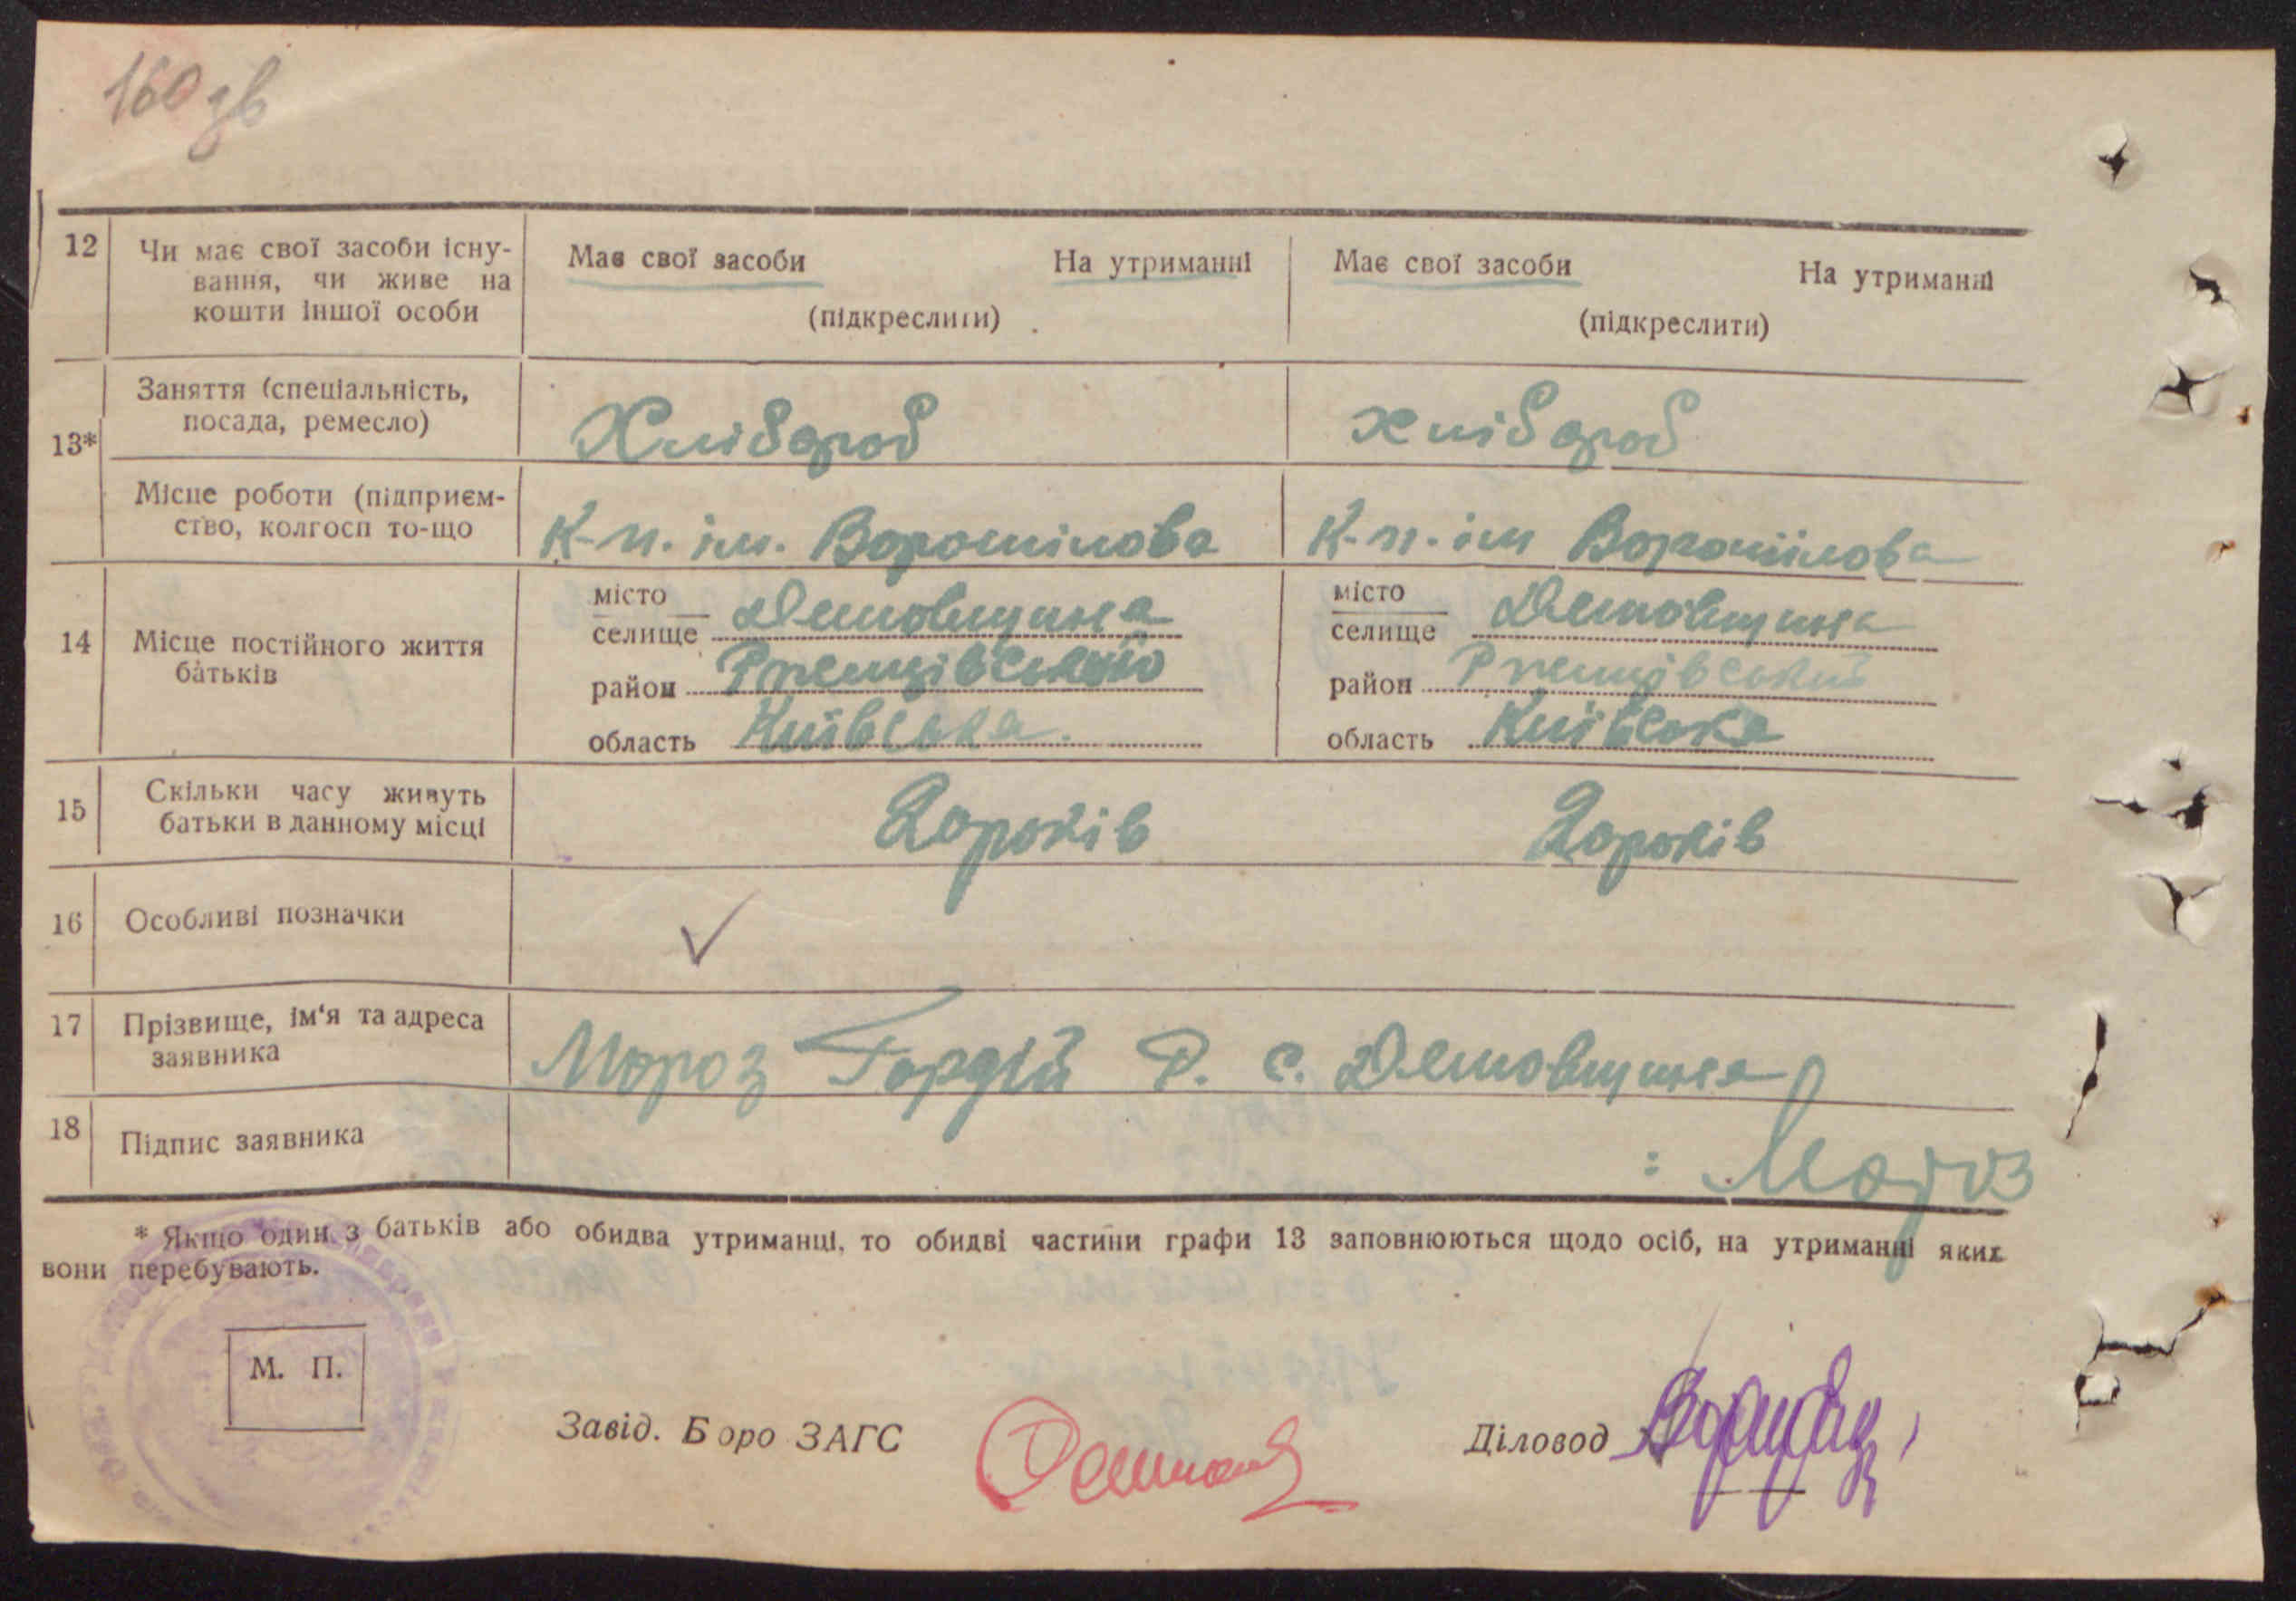 160 зв
12 Чи має свої засоби існу-
вання, чи живе на
кошти іншої особи
Має свої засоби На утриманні Має свої засоби На утриманні
(підкреслити) (підкреслити)
13* Заняття (спеціальність,
посада, ремесло)
Хлібороб хлібороб
Місце роботи (підприєм-
ство, колгосп то-що
К-п. ім. Ворошілова К-п. ім Ворошілова
14 Місце постійного життя
батьків
місто
селище Демовщина
район Ржищівський
область Київська.
місто
селище Демовщина
район Ржищівський
область Київська
15 Скільки часу живуть
батьки в данному місці
років років
16 Особливі позначки
✓
17 Прізвище, ім'я та адреса
заявника
Мороз Гордій Р. с. Демовщина
18 Підпис заявника
: Мороз
* Якщо один з батьків або обидва утриманці, то обидві частини графи 13 заповнюються щодо осіб, на утриманні яких
вони перебувають.
М. П.
Завід. Бюро ЗАГС
Діловод